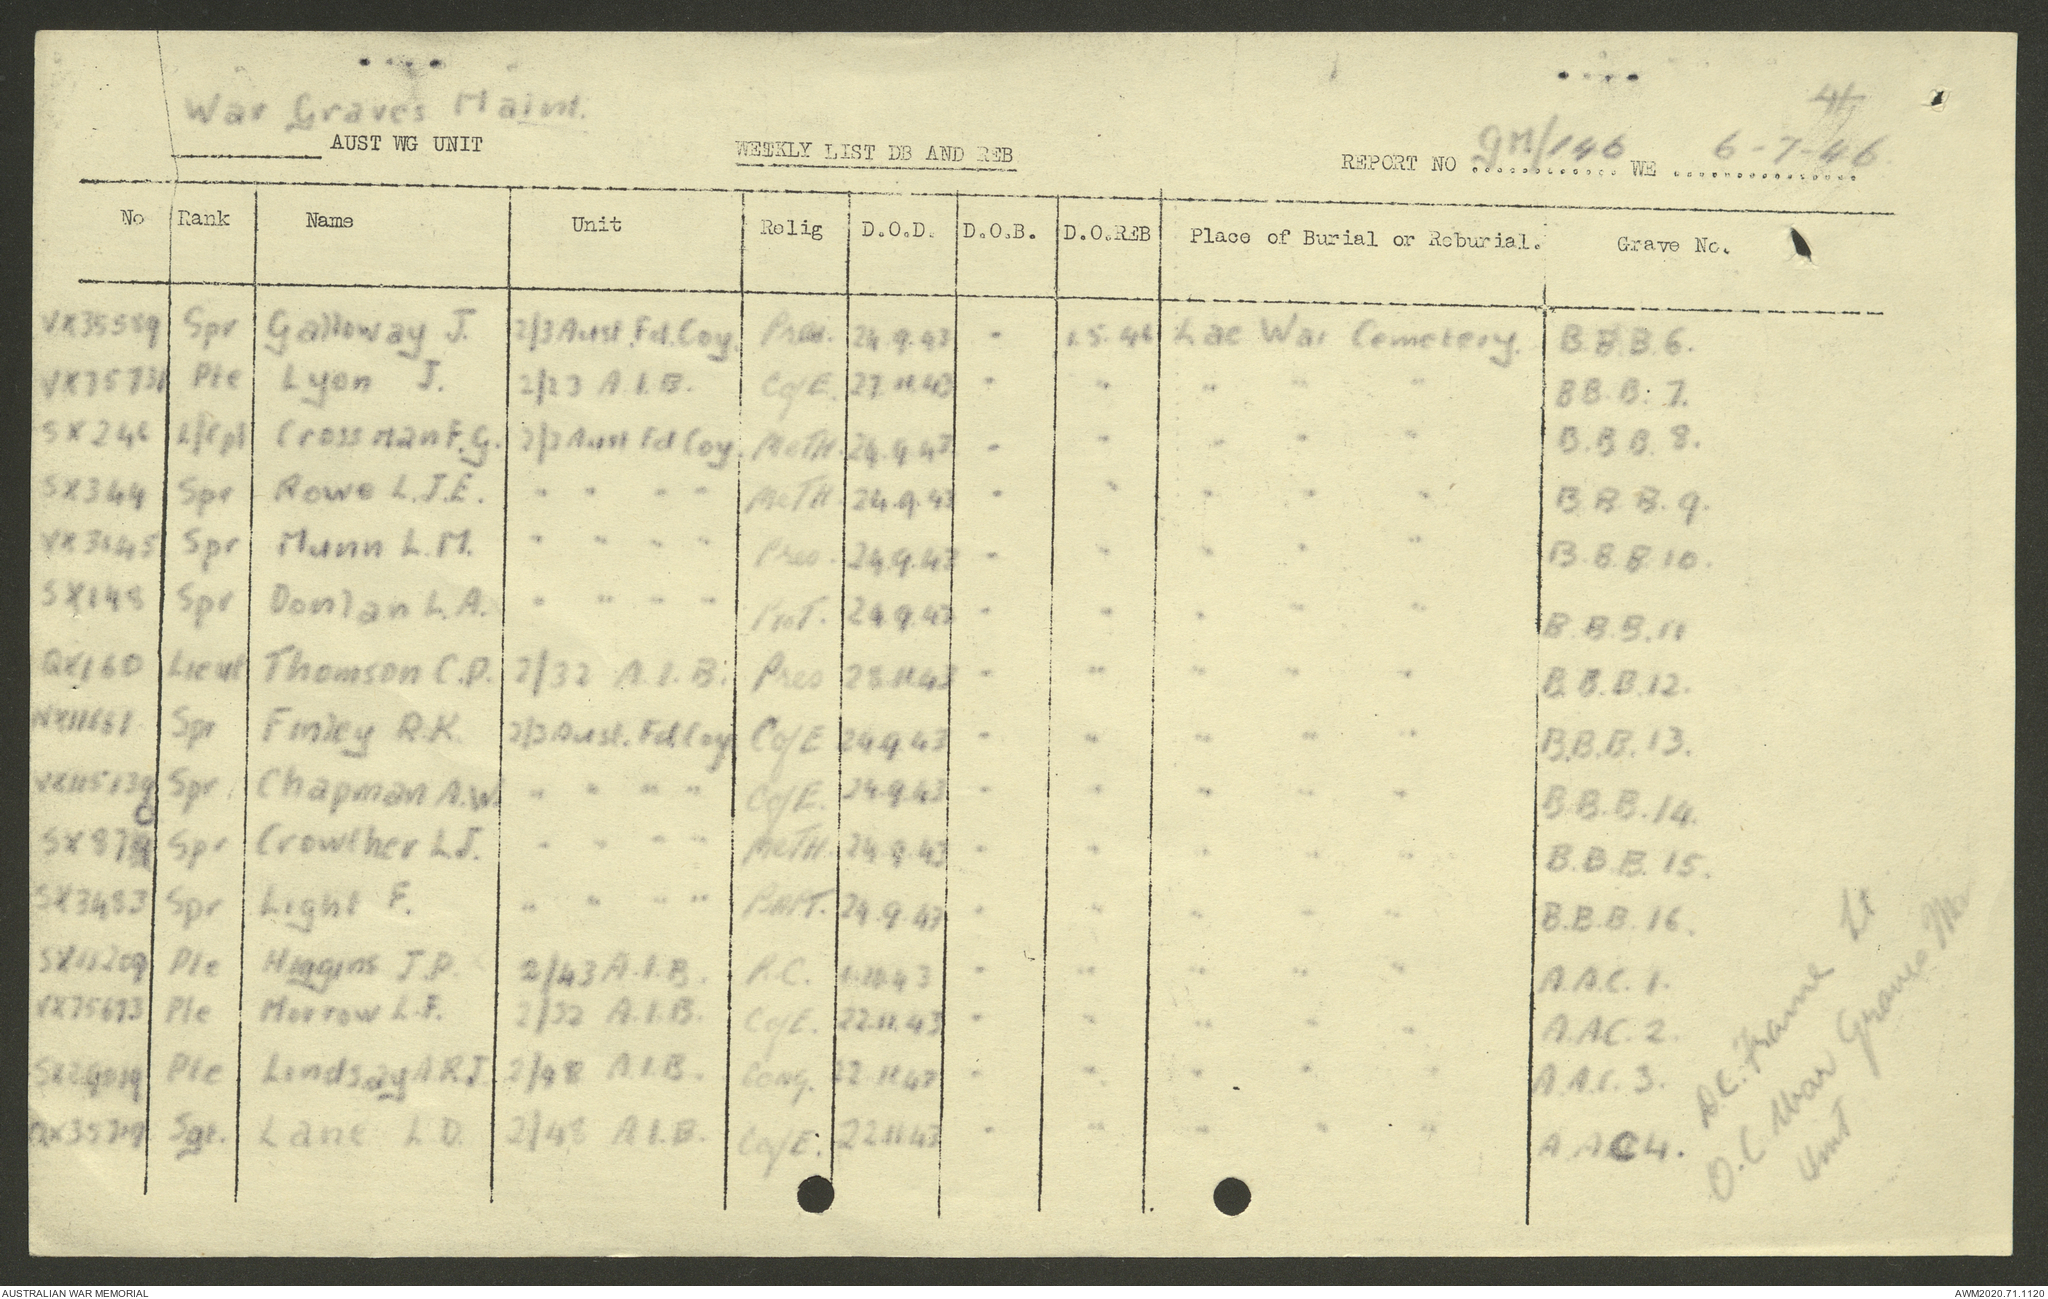 War Graves Maint.
4/7
AUST WG UNIT WEEKLY LIST DB AND REB REPORT NO GM/146 WE 6-7-46
No Rank Name Unit Relig D.O.D. D.O.B. D.O.REB Place of Burial or Reburial. Grave No.
VX35589 Spr Galloway J. 2/3 Aust. Fd. Coy. Pres. 24.9.43 - 1.5.46 Lae War Cemetery. B.B.B.6.
VX75731 Pte Lyon J. 2/23 A.I.B. C of E. 27.11.43 - " " " " B B. B. 7.
SX246 L/Cpl Crossman F.G. 2/3 Aust Fd Coy. MeTH. 24.9.43 - " " " " B.B.B. 8.
SX344 Spr Rowe L.J.E. " " " " MeTH. 24.9.43 - " " " " B B B. 9.
VX3145 Spr Munn L.M. " " " " Pres. 24.9.43 - " " " " B.B.B.10.
SX148 Spr Donlan L.A. " " " " ProT. 24.9.43 - " " " " B.B.B.11
QX160 Lieut Thomson C.D. 2/32 A.I.B. Pres 28.11.43 - " " " " B.B.B.12.
Spr Finley R.K. 2/3 Aust. Fd Coy C of E 24.9.43 - " " " " B.B.B.13.
VX115139 Spr. Chapman A.W. " " " " C of E. 24.9.43 - " " " " B.B.B.14.
SX870 Spr Crowther L.J. " " " " MeTH. 24.9.43 - " " " " B.B.B.15.
SX3483 Spr Light F. " " " " BAPT. 24.9.43 - " " " " B.B.B.16.
SX11209 Pte Higgins J.P. 2/43 A.I.B. R.C. 1.10.43 " " " " A.A.C. 1.
VX75673 Pte Morrow L.F. 2/32 A.I.B. C of E. 22.11.43 - " " " " A.A.C. 2.
Pte Lindsay A.R.J. 2/48 A.I.B. Cong. 22.11.43 - " " " " A.A.C. 3.
Sgt. Lane L D. 2/48 A.I.B. C of E. 22.11.43 - " " " " A A C 4.
D.C. Frame Lt
O.C War Graves Ma
Unit
AUSTRALIAN WAR MEMORIAL AWM2020.71.1120